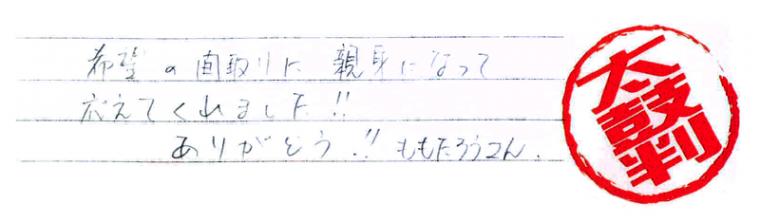 希望の間取りに親身になって
応えてくれました!!
ありがとう!! ももたろうさん.
太鼓判